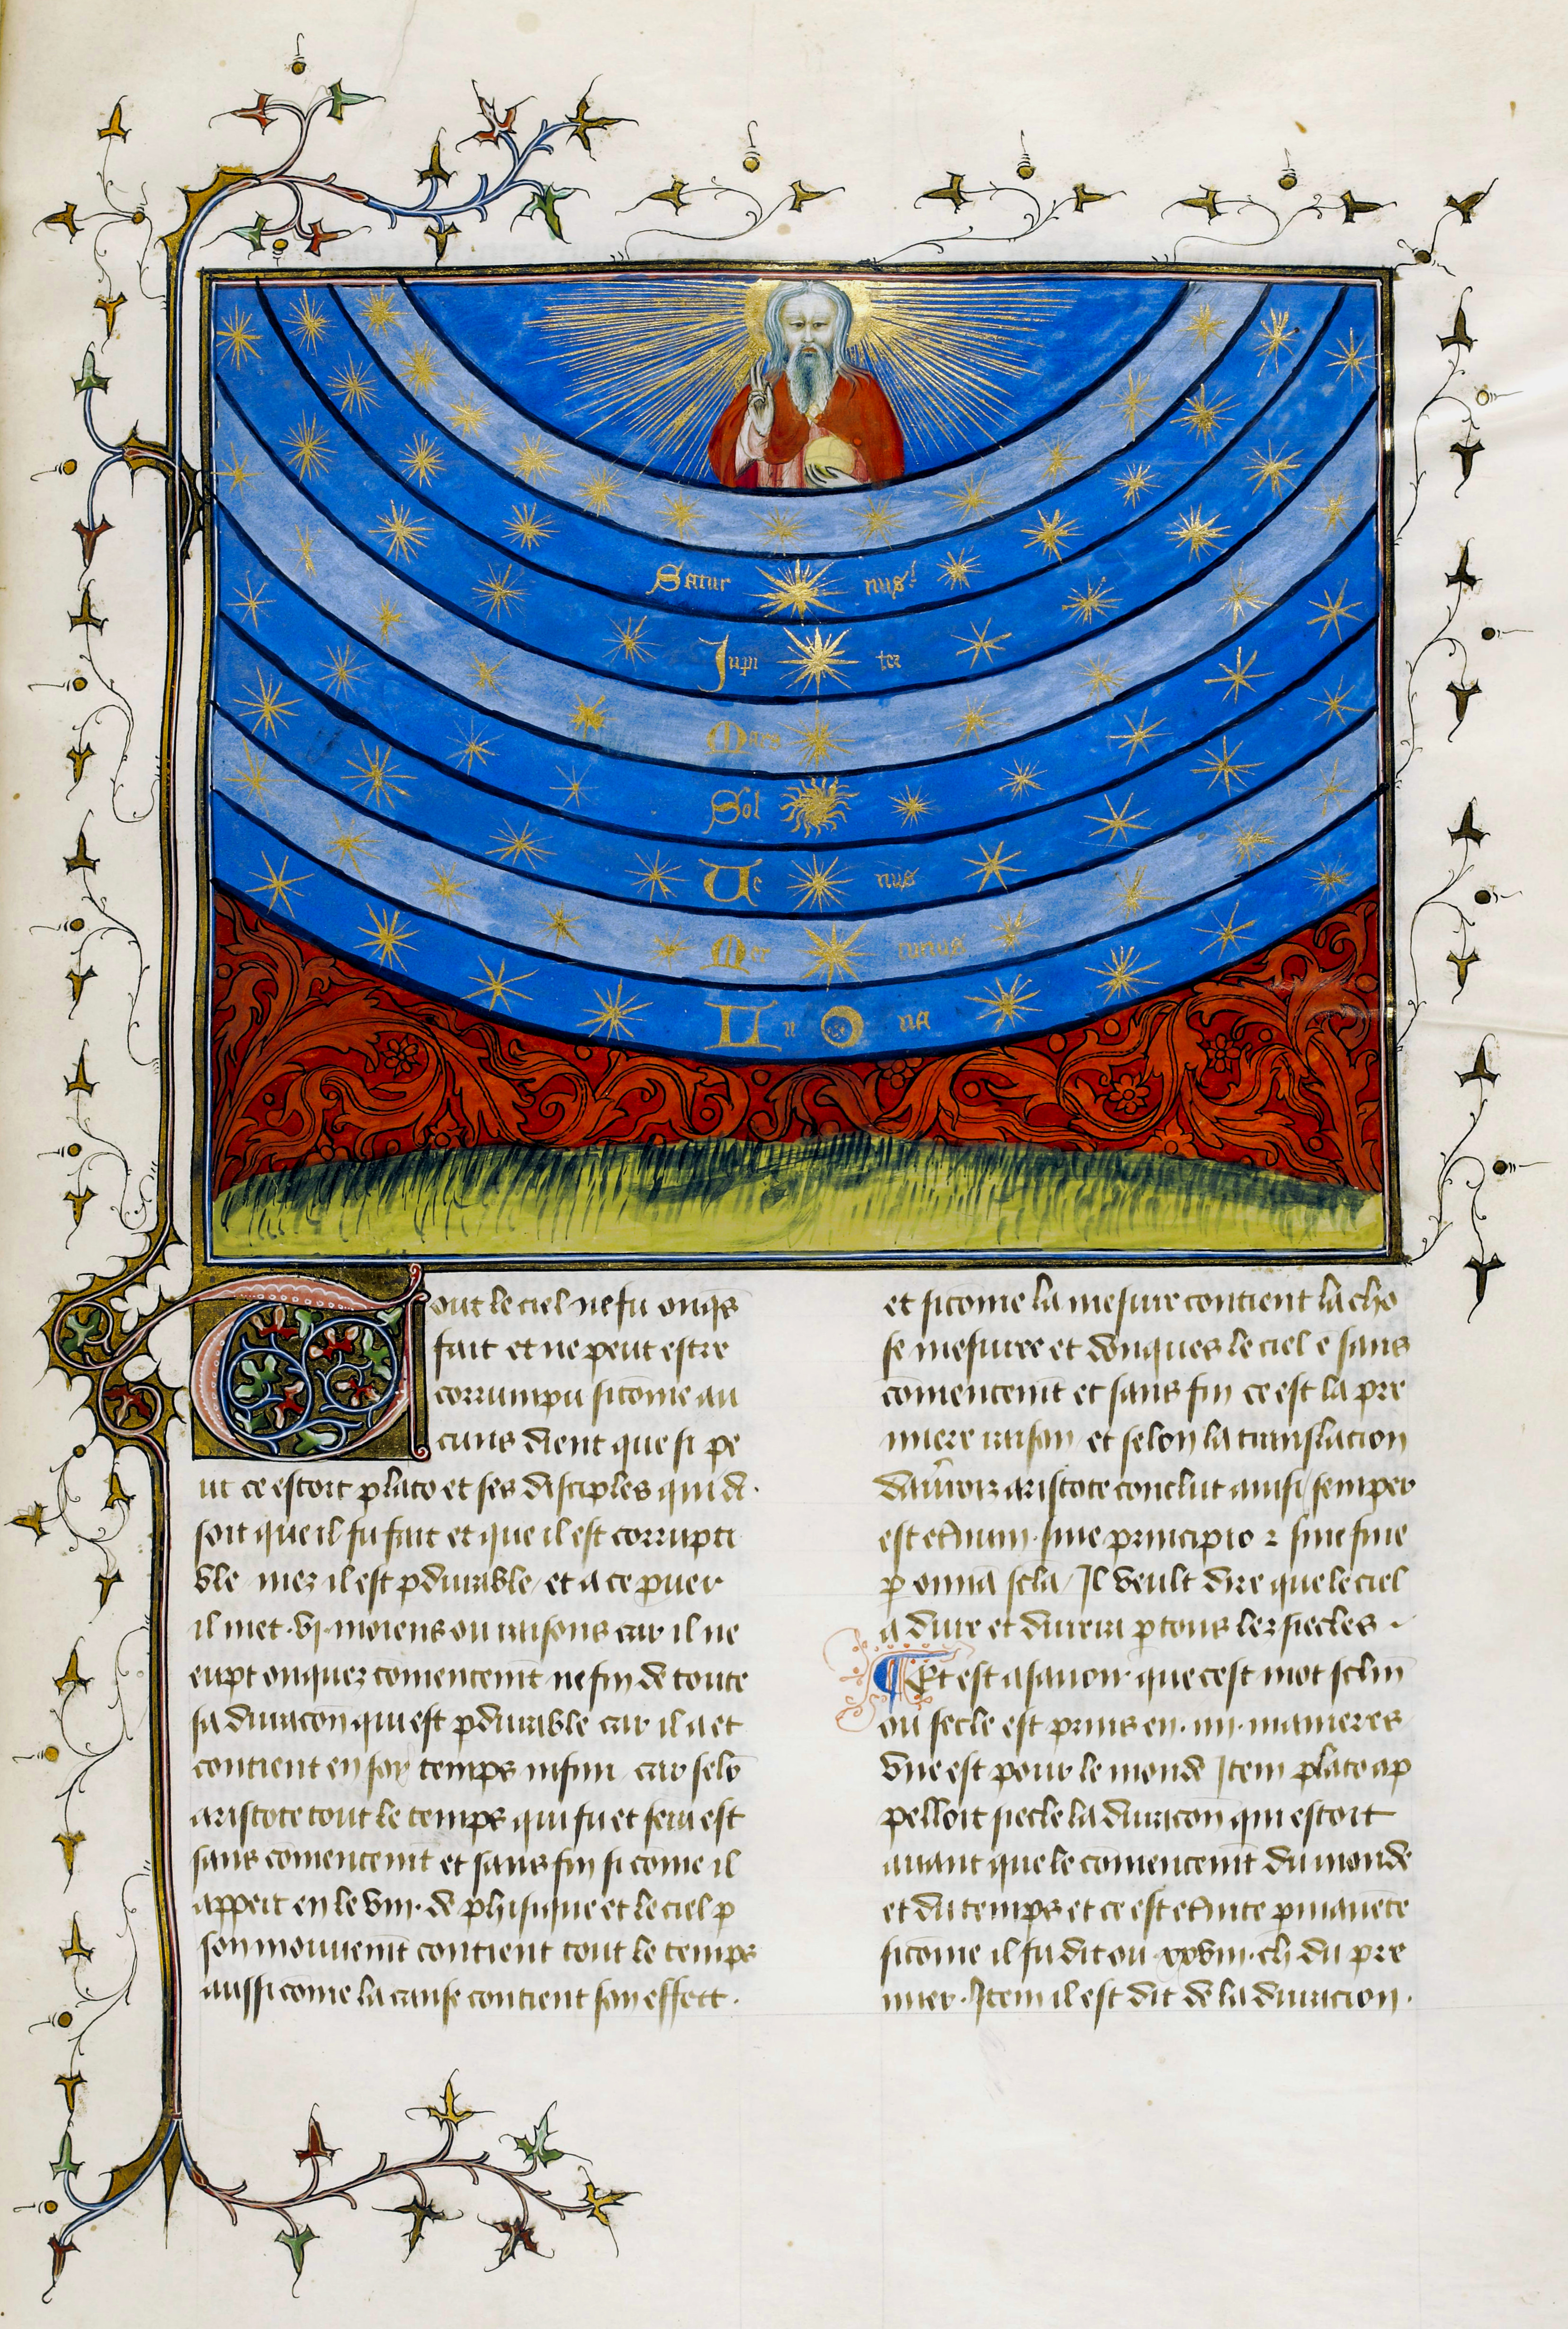 Satur nus
Jupi ter
Mars
Sol
Ve nus
Mer curius
Lu na
Tout le ciel ne fu onq̄s
fait et ne peut estre
corrumpu si cōme au
cuns dient que si pe
ut ce estoit plato et ses disciples qui di
soit que il fu fait et que il est corrupti
ble mez il est ꝑdurable et a ce puer
il met .vj. moiens ou raisons car il ne
eupt onquez cōmencem̄t ne fin de toute
sa duracōn qui est ꝑdurable car il a et
contient en soy temps infini car selō
aristote tout le temps qui fu et sera est
sans cōmencem̄t et sans fin si cōme il
appert en le viii. de phisique et le ciel ꝑ
son mouuem̄t contient tout le temps
aussi come la cause contient son effect.
et si cōme la mesure contient la cho
se mesuree et donques le ciel ē sans
cōmencem̄t et sans fin ce est la pre
miere raison et selon la translacion
daūroiz aristote conclut ainsi semper
est et̄num sine principio ⁊ sine fine
ꝑ omnia sc̄la Il veult dire que le ciel
a dure et durera ꝑ tous lez siecles
¶ Et est a sauoir que cest mot sc̄lm
ou secle est prins en .iiii. manieres
vne est pour le monde Item plato ap
pelloit siecle la duracōn qui estoit
auant que le cōmencem̄t du monde
et du temps et ce est et̄nite ꝑmanēte
si cōme il fu dit ou .xxviii. ch du pre
mier. Item il est dit de la duracion.